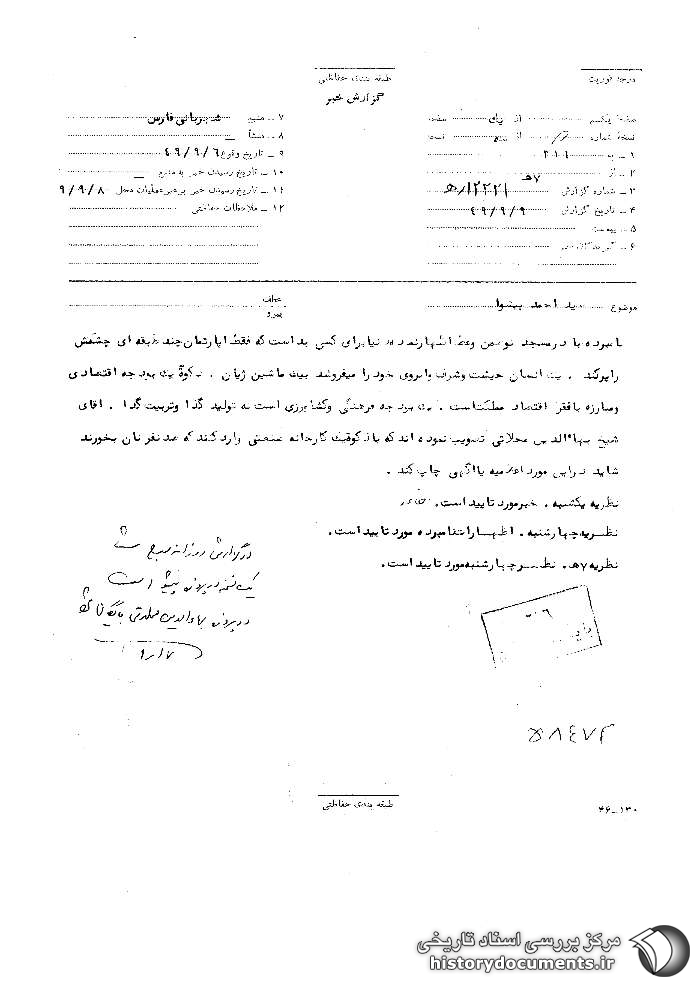 طبقه بندی حفاظتی
گزارش خبر
درجه فوریت
صفحه یکم از یک صفحه
نسخه شماره از نسخه
۱ ــ به ۳۱۱
۲ ــ از ۷هـ
۳ ــ شماره گزارش ۱۲۲۲۱/هـ
۴ ــ تاریخ گزارش ۴۹/۹/۹
۵ ــ پیوست
۶ ــ گیرندگان خبر
۷ ــ منبع شهربانی فارس
۸ ــ منشأ
۹ ــ تاریخ وقوع ۴۹/۹/۶
۱۰ ــ تاریخ رسیدن خبر به منبع
۱۱ ــ تاریخ رسیدن خبر به رهبر عملیات محل ۹/۹/۸
۱۲ ــ ملاحظات حفاظتی
موضوع سید احمد پیشوا
عطف
پیرو
نامبرده بالا در مسجد نو ضمن وعظ اظهار نموده دنیا برای کسی بد است که فقط اپارتمان چند طبقه ای چشمش
را پر کند . یک انسان حیثیت وشرف وابروی خود را میفروشد بیک ماشین ژیان . زکوة یک بودجه اقتصادی
ومبارزه با فقر و اقتصاد مملکت است . یک بودجه فرهنگی وکشاورزی است نه تولید گدا وتربیت گدا . اقای
شیخ بهاالدین محلاتی تصویب نموده اند که با زکوة یک کارخانه صنعتی وارد کنند که صد نفر نان بخورند
شاید در این مورد اعلامیه یا اگهی چاپ کند .
نظریه یکشنبه . خبر مورد تایید است .
نظریه چهارشنبه . اظهارات نامبرده مورد تایید است .
نظریه ۷هـ . نظریه چهارشنبه مورد تایید است .
در گزارش روزانه منعکس شد
یک نسخه در پرونده پیشوا است
در پرونده بهاءالدین محلاتی بایگانی شود
۹/۱۷
۵۸۴۷۳
طبقه بندی حفاظتی
۴۶ــ۱۳۰
مرکز بررسی اسناد تاریخی
historydocuments.ir